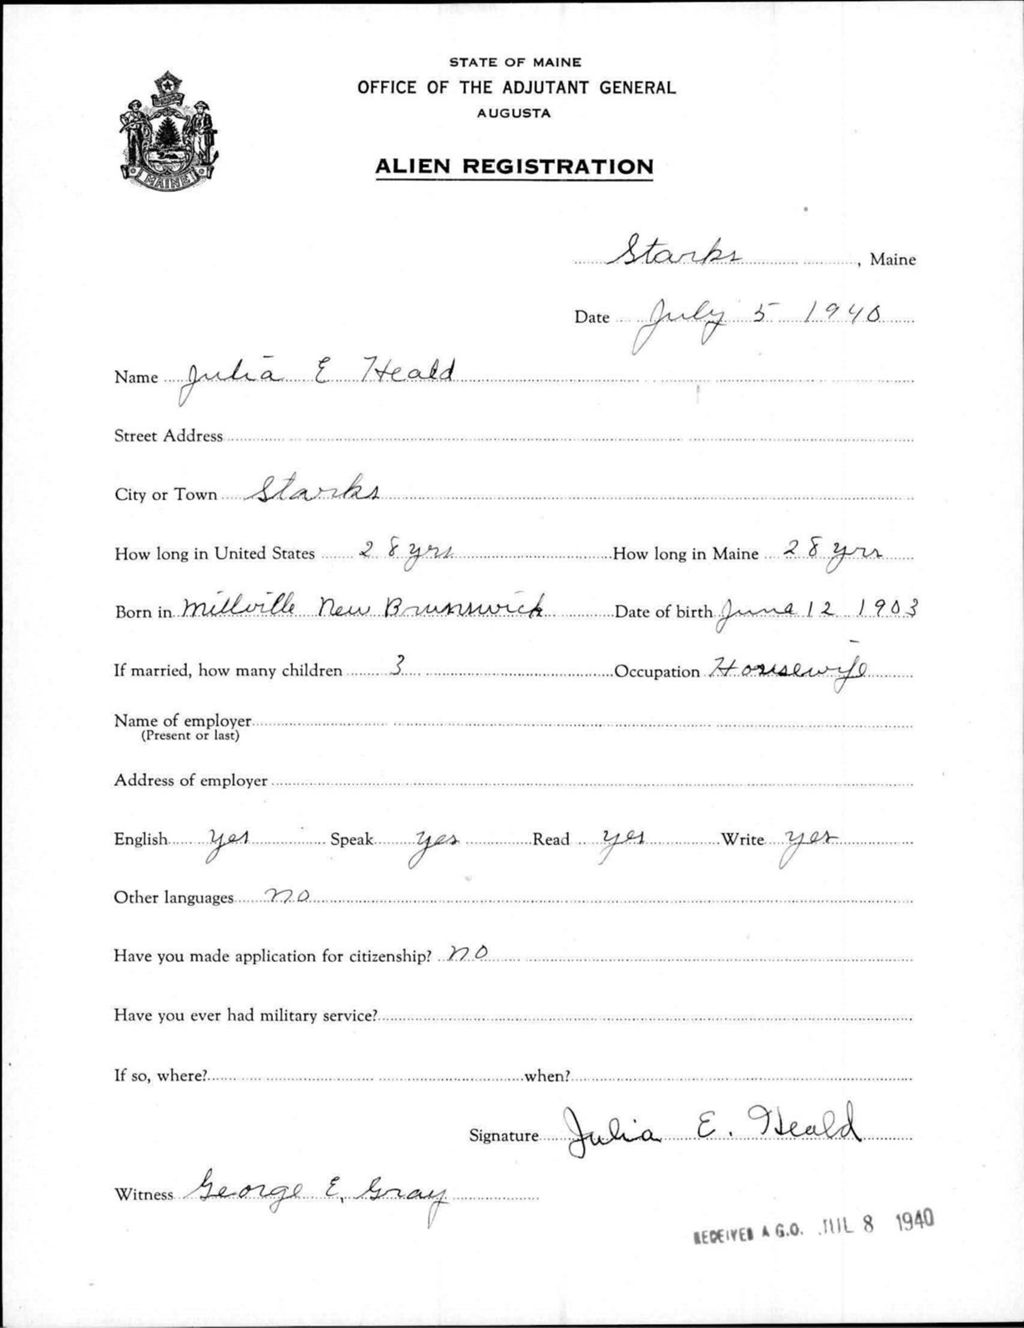 STATE OF MAINE
OFFICE OF THE ADJUTANT GENERAL
AUGUSTA
ALIEN REGISTRATION
MAINE
Starks, Maine
Date July 5 1940
Name Julia E Heald
Street Address
City or Town Starks
How long in United States 28 yrs How long in Maine 28 yrs
Born in Millville New Brunswick Date of birth June 12 1903
If married, how many children 3 Occupation Housewife
Name of employer
(Present or last)
Address of employer
English yes Speak yes Read yes Write yes
Other languages no
Have you made application for citizenship? no
Have you ever had military service?
If so, where? when?
Signature Julia E. Heald
Witness George E. Gray
RECEIVED A.G.O. JUL 8 1940